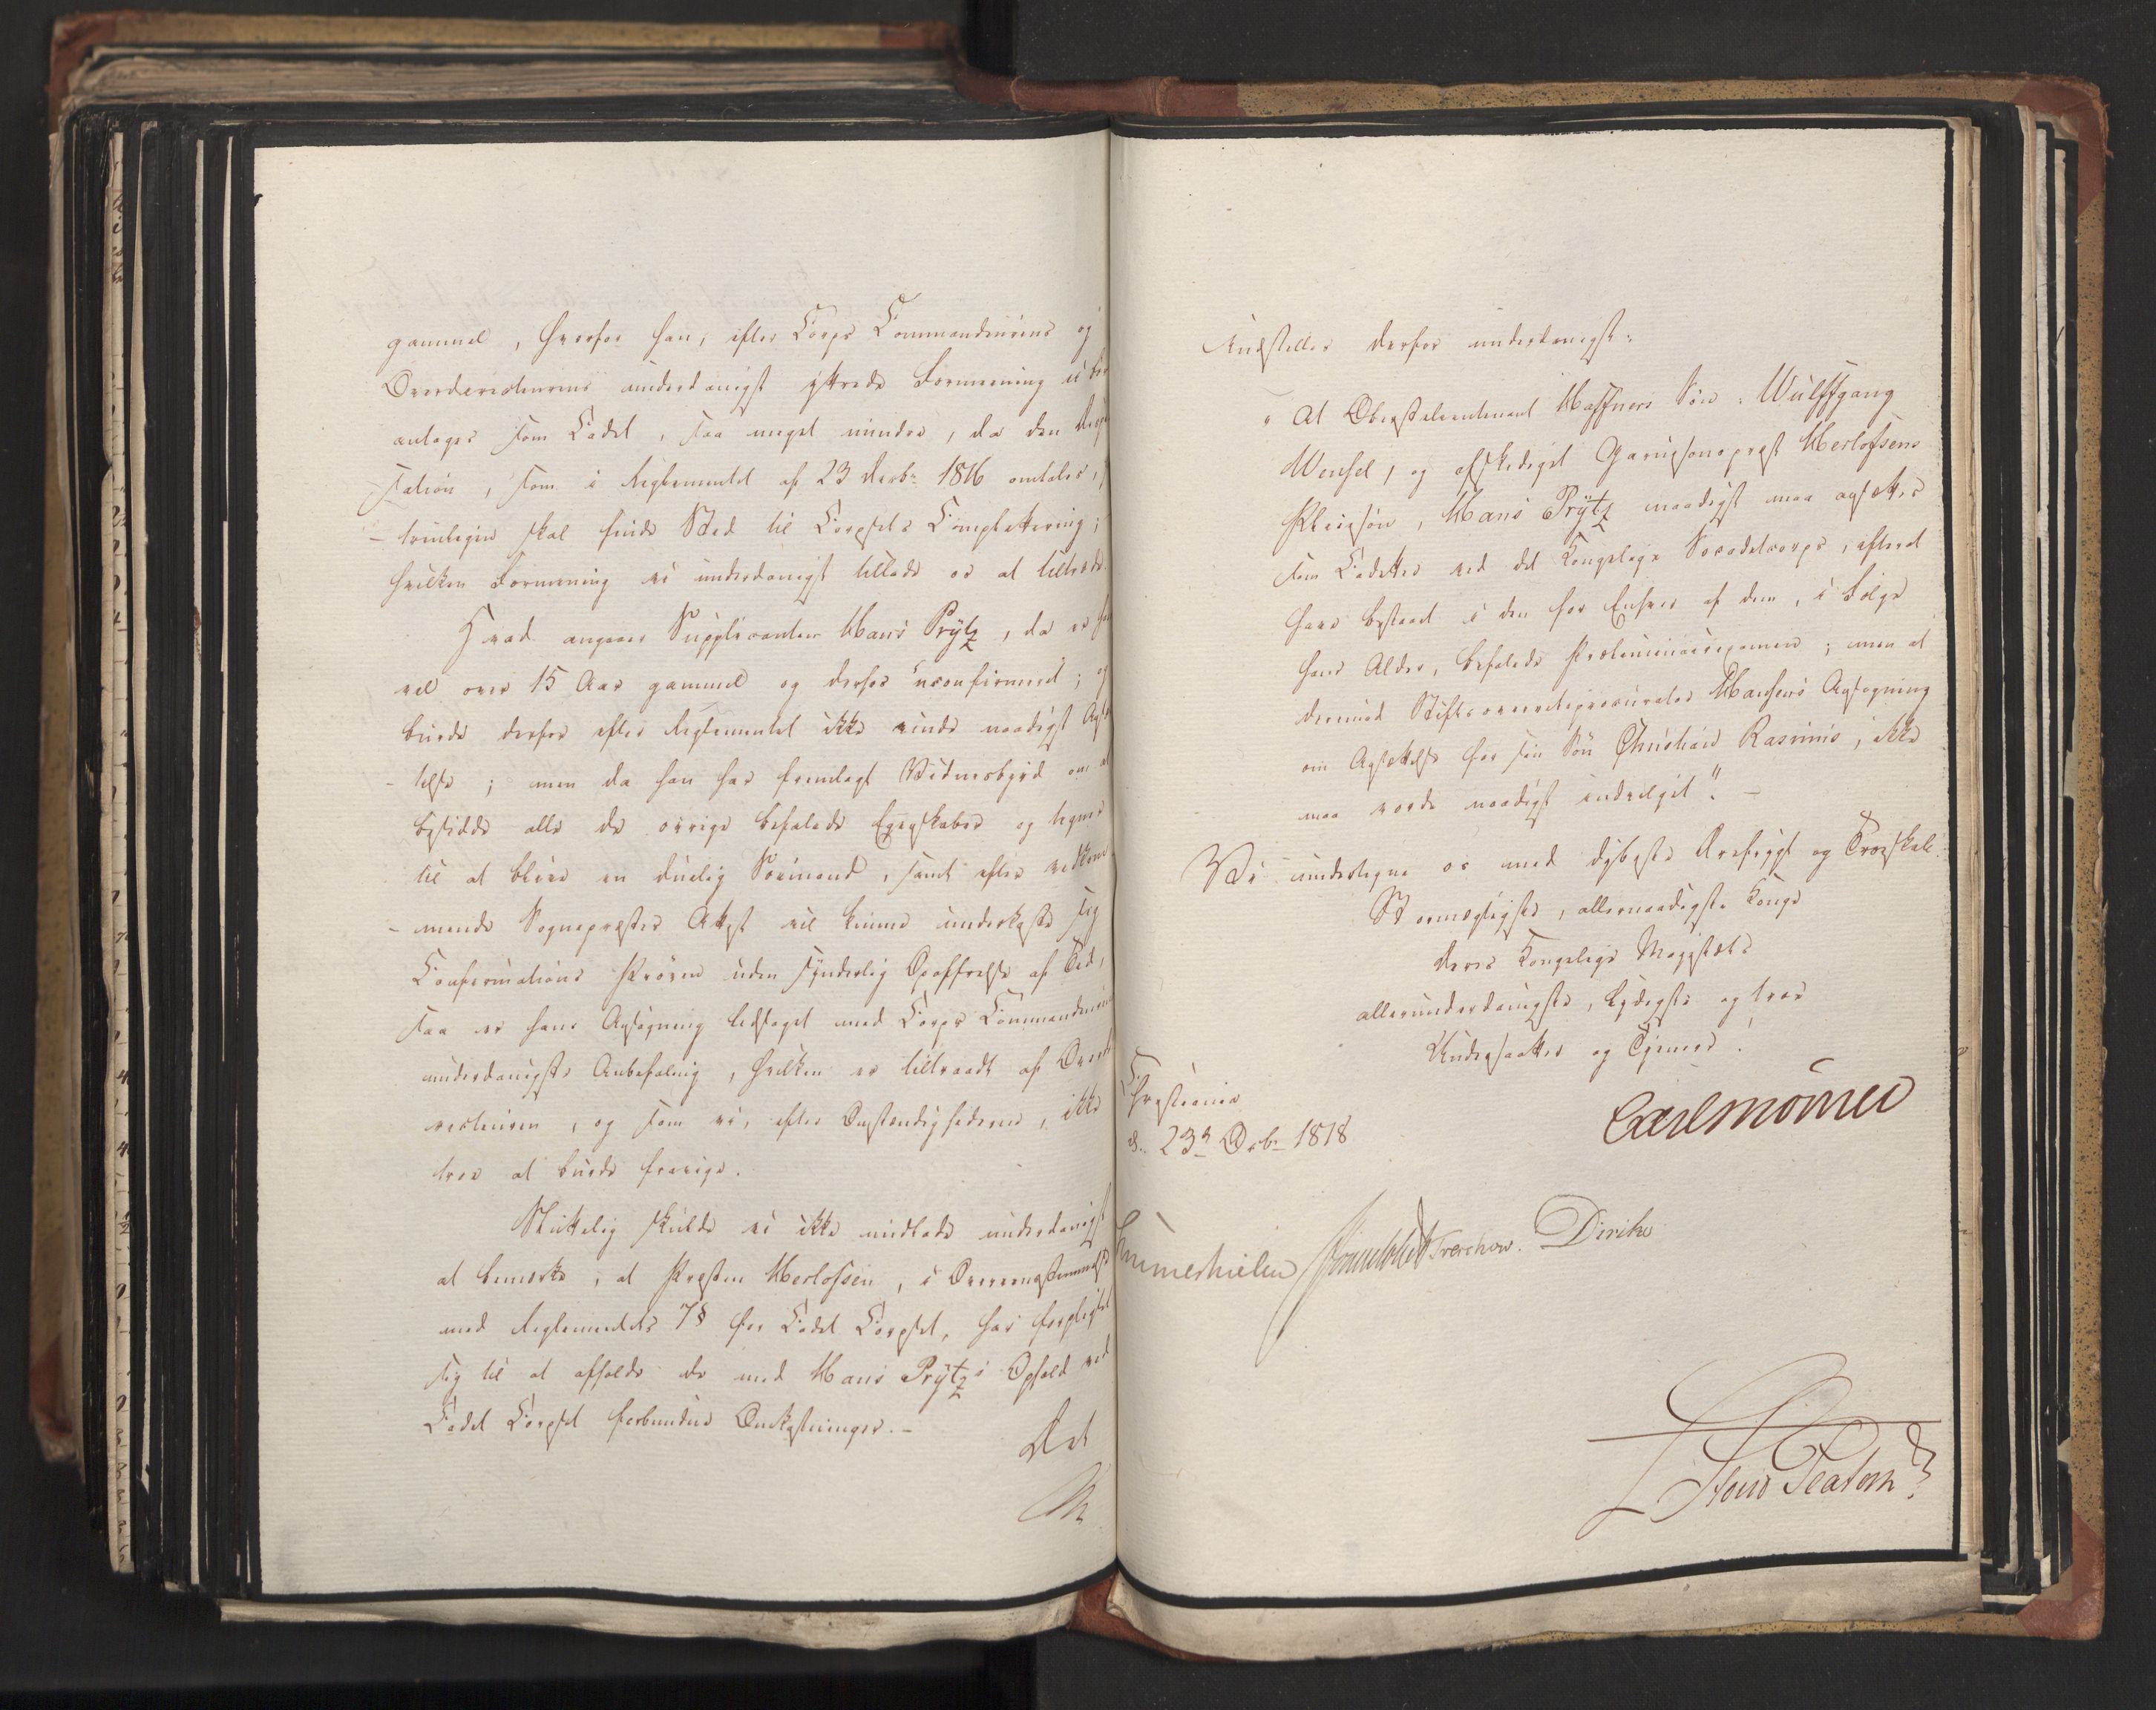 gammel, hvorfor han, efter Corps Commandeurens og
Overdirecteurens underdanigst yttrede Formeening ei bør
antages som Cadet, saa meget mindre, da den
-sation, som i Reglementet af 23 Decbr 1816 omtales,
-trinligen skal finde Sted til Corpsets Complettering;
hvilken Formening vi underdanigst tillade os at tiltræde.
Hvad angaaer Supplicanten Hans Prÿtz, da er han
vel over 15 Aar gammel og derfor uconfirmeret; og
burde derfor efter Reglementet ikke vinde naadigst
-telse; men da han har fremlagt Vidnesbyrd om at
besidde alle de øvrige befalede Egenskaber og tegner
til at blive en duelig Søemand, samt efter vedkom-
-mende Sognepræstes Attest vil kunne underkaste sig
Confirmations Prøven uden synderlig Opoffrelse af Tid,
saa er hans Ansøgning ledsaget med Corps Commandeurens
underdanigste Anbefaling, hvilken er tiltraadt af Overdi-
recteuren, og som vi, efter Omstændighederne, ikke
troe at burde fravige.
Sluttelig skulde vi ikke undlade underdanigst
at bemærke, at Præsten Herlofsen, i Overeensstemmelse
med Reglementets 7§ for Cadet Corpset, har forpligtet
sig til at afholde de med Hans Prÿtz's Ophold ved
Cadet Corpset forbundne Omkostninger.-
Det
Indstilles derfor underdanigst:
"At Oberstlieutenant Haffners Søn: Wulffgang
Wenzel, og afskediget Garnisonspræst Herlofsens
Pleiesøn, Hans Prÿtz naadigst maa ansættes
som Cadetter ved det Kongelige Søcadetcorps, efterat
have bestaaet i den for Enhver af dem, i Følge
hans Alder, befalede Præliminairexamen; men at
derimod Stiftsoverretsprocurator Hansens Ansøgning
om Ansættelse for sin Søn Christian Rasmus, ikke
maa vorde naadigst indvilget". -
Vi undertegne os med dybeste Ærefrygt og Troeskab.
Stormægtigste, allernaadigste Konge
Deres Kongelige Majestæts
allerunderdanigste, lydigste og troe
Undersaatter og Tjenere!
Christiania
d. 23d Decbr 1818
Carl Mörner
Sommerhielm Treschow. Diriks